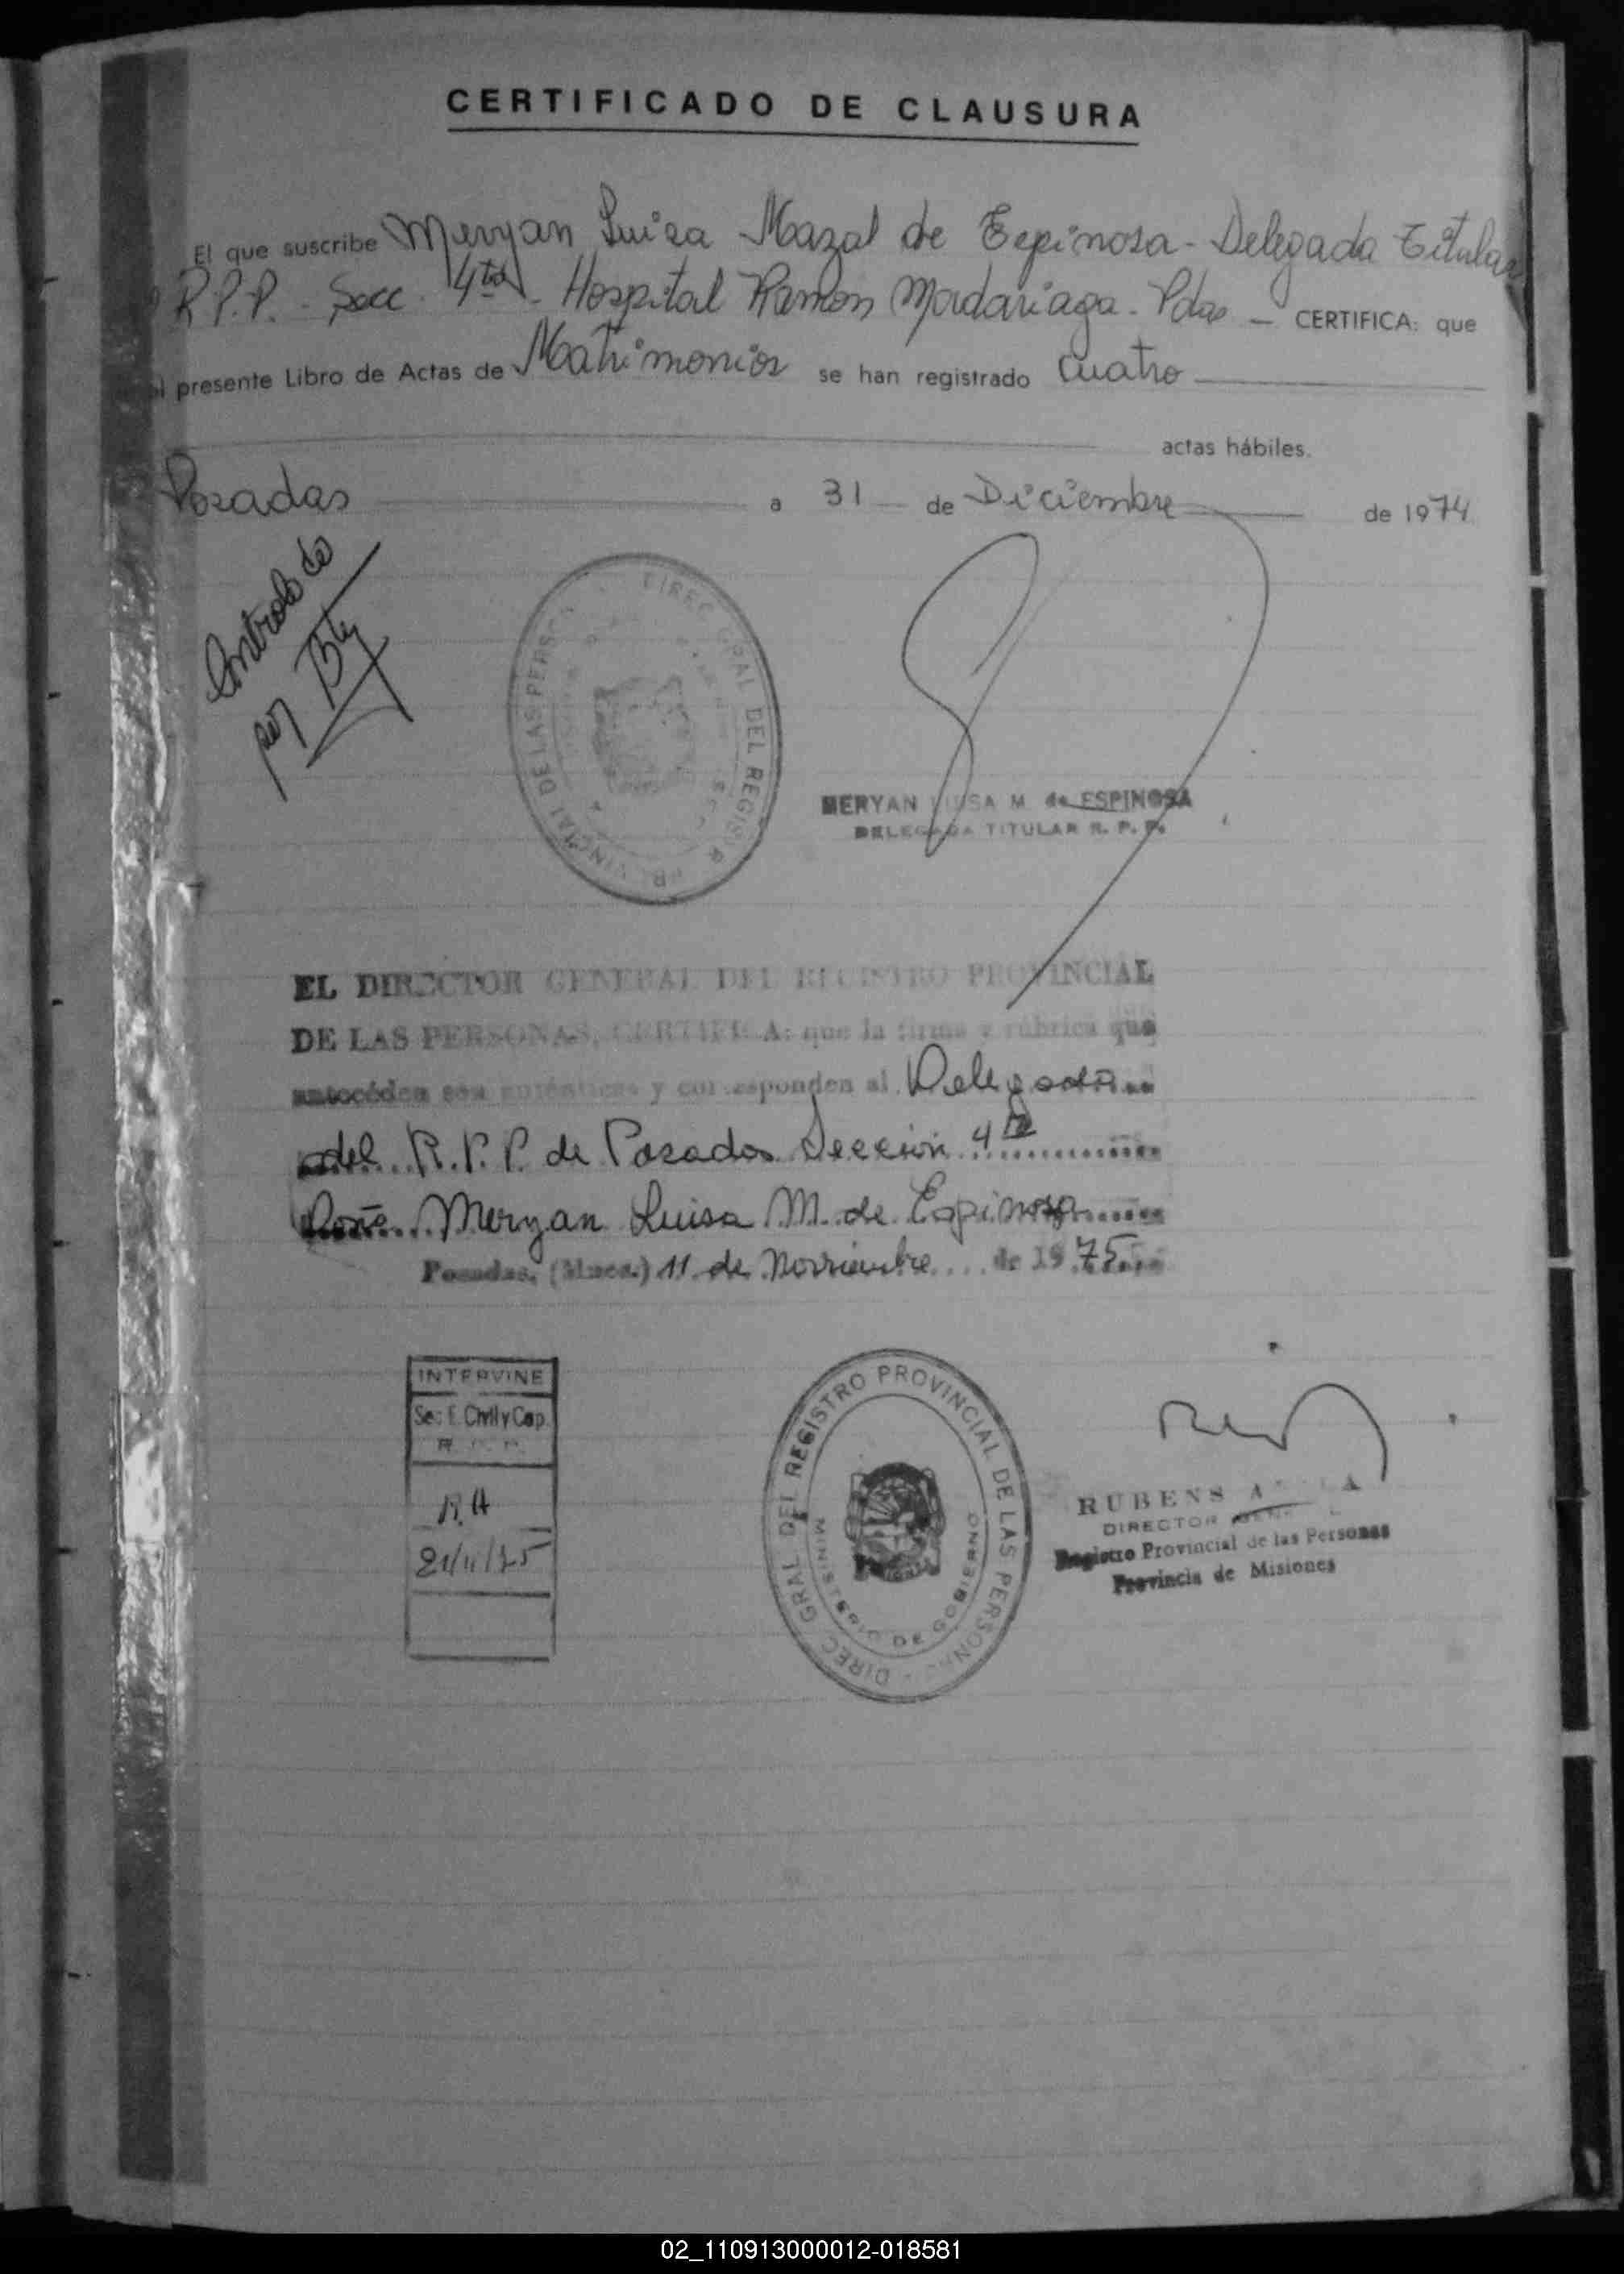 CERTIFICADO DE CLAUSURA
El que suscribe Meryan Luisa Mazal de Espinosa - Delegada Titular
R.P.P. - Secc. 4ta - Hospital Ramon Madariaga - Pdas - CERTIFICA: que
el presente Libro de Actas de Matrimonios se han registrado Cuatro
actas hábiles.
Posadas a 31 de Diciembre de 1974
Controlado
por
DIREC GRAL DEL REGISTR PROVINCIAL DE LAS PERSO
MERYAN LUISA M. de ESPINOSA
DELEGADA TITULAR R. P. P.
EL DIRECTOR GENERAL DEL REGISTRO PROVINCIAL
DE LAS PERSONAS, CERTIFICA: que la firma y rúbrica que
antecéden son auténticas y corresponden al Delegada
del R.P.P. de Posadas Sección 4ta
Doña Meryan Luisa M. de Espinosa
Posadas, (Mnes.) 11 de Noviembre de 1975
INTERVINE
Sec E. Civil y Cap.
R. P. P.
21/11/75
DIREC GRAL DEL REGISTRO PROVINCIAL DE LAS PERSONAS
MINISTERIO DE GOBIERNO
RUBENS
DIRECTOR GENERAL
Registro Provincial de las Personas
Provincia de Misiones
02_110913000012-018581